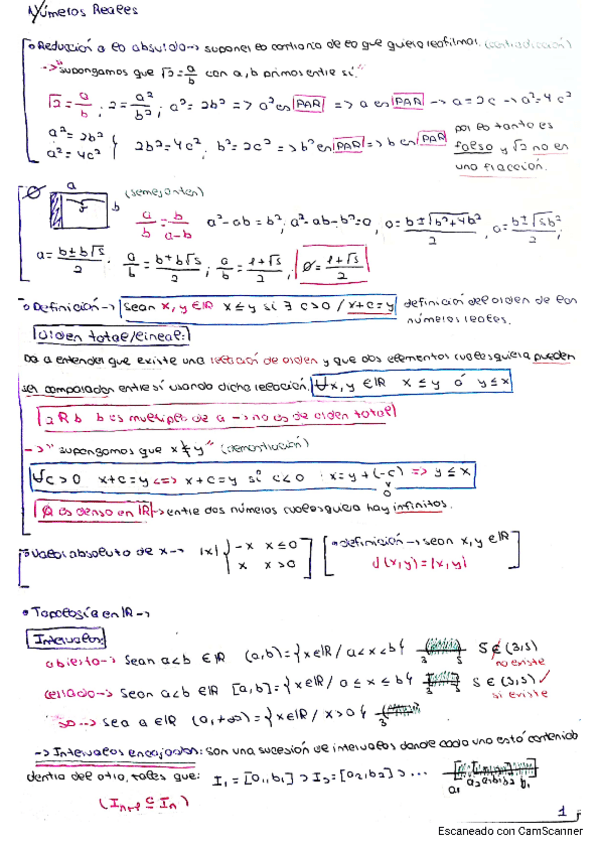 Números Reales
Reducción a lo absurdo → suponer lo contrario de lo que quiero reafirmar. (contradicción)
-> "supongamos que √2 = a/b con a, b primos entre sí."
√2 = a/b ; 2 = a²/b² ; a² = 2b² => a² es PAR => a es PAR → a = 2c → a² = 4c²
a² = 2b²
a² = 4c² } 2b² = 4c² ; b² = 2c² => b² es PAR => b es PAR por lo tanto es falso y √2 no es una fracción.
Ø a b (semejantes)
a/b = b/a-b a²-ab = b² ; a²-ab-b² = 0 , a = b±√b²+4b²/2 , a = b±√5b²/2 ;
a = b±b√5/2 ; a/b = b+b√5/2 ; a/b = 1+√5/2 ; Ø = 1+√5/2
Definición → sean x, y ∈ IR x ≤ y si ∃ c > 0 / x+c = y definición del orden de los números reales.
Orden total/lineal:
Da a entender que existe una relación de orden y que dos elementos cualesquiera pueden
ser comparados entre sí usando dicha relación. ∀x, y ∈ IR x ≤ y ó y ≤ x
a R b b es multiplo de a → no es de orden total
-> "supongamos que x ≰ y" (demostración)
∀c > 0 x+c = y <=> x+c = y si c < 0 x = y + (-c) => y ≤ x
0
Q es denso en IR → entre dos números cualesquiera hay infinitos.
Valor absoluto de x → |x| { -x x ≤ 0
x x > 0
definición → sean x, y ∈ IR
d(x,y) = |x,y|
Topología en IR →
Intervalos:
abierto → Sean a<b ∈ IR (a,b) = {x ∈ IR / a < x < b} 3 5 5 ∉ (3,5)
no existe
cerrado → Sean a<b ∈ IR [a,b] = {x ∈ IR / a ≤ x ≤ b} 3 5 5 ∈ (3,5) ✓
si existe
Sea a ∈ IR (a,+∞) = {x ∈ IR / x > a} 3
-> Intervalos encajados: son una sucesión de intervalos donde cada uno está contenido
dentro del otro, tales que: I₁ = [a₁, b₁] ⊃ I₂ = [a₂, b₂] ⊃ ...
(Iₙ₊₁ ⊆ Iₙ)
1
Escaneado con CamScanner